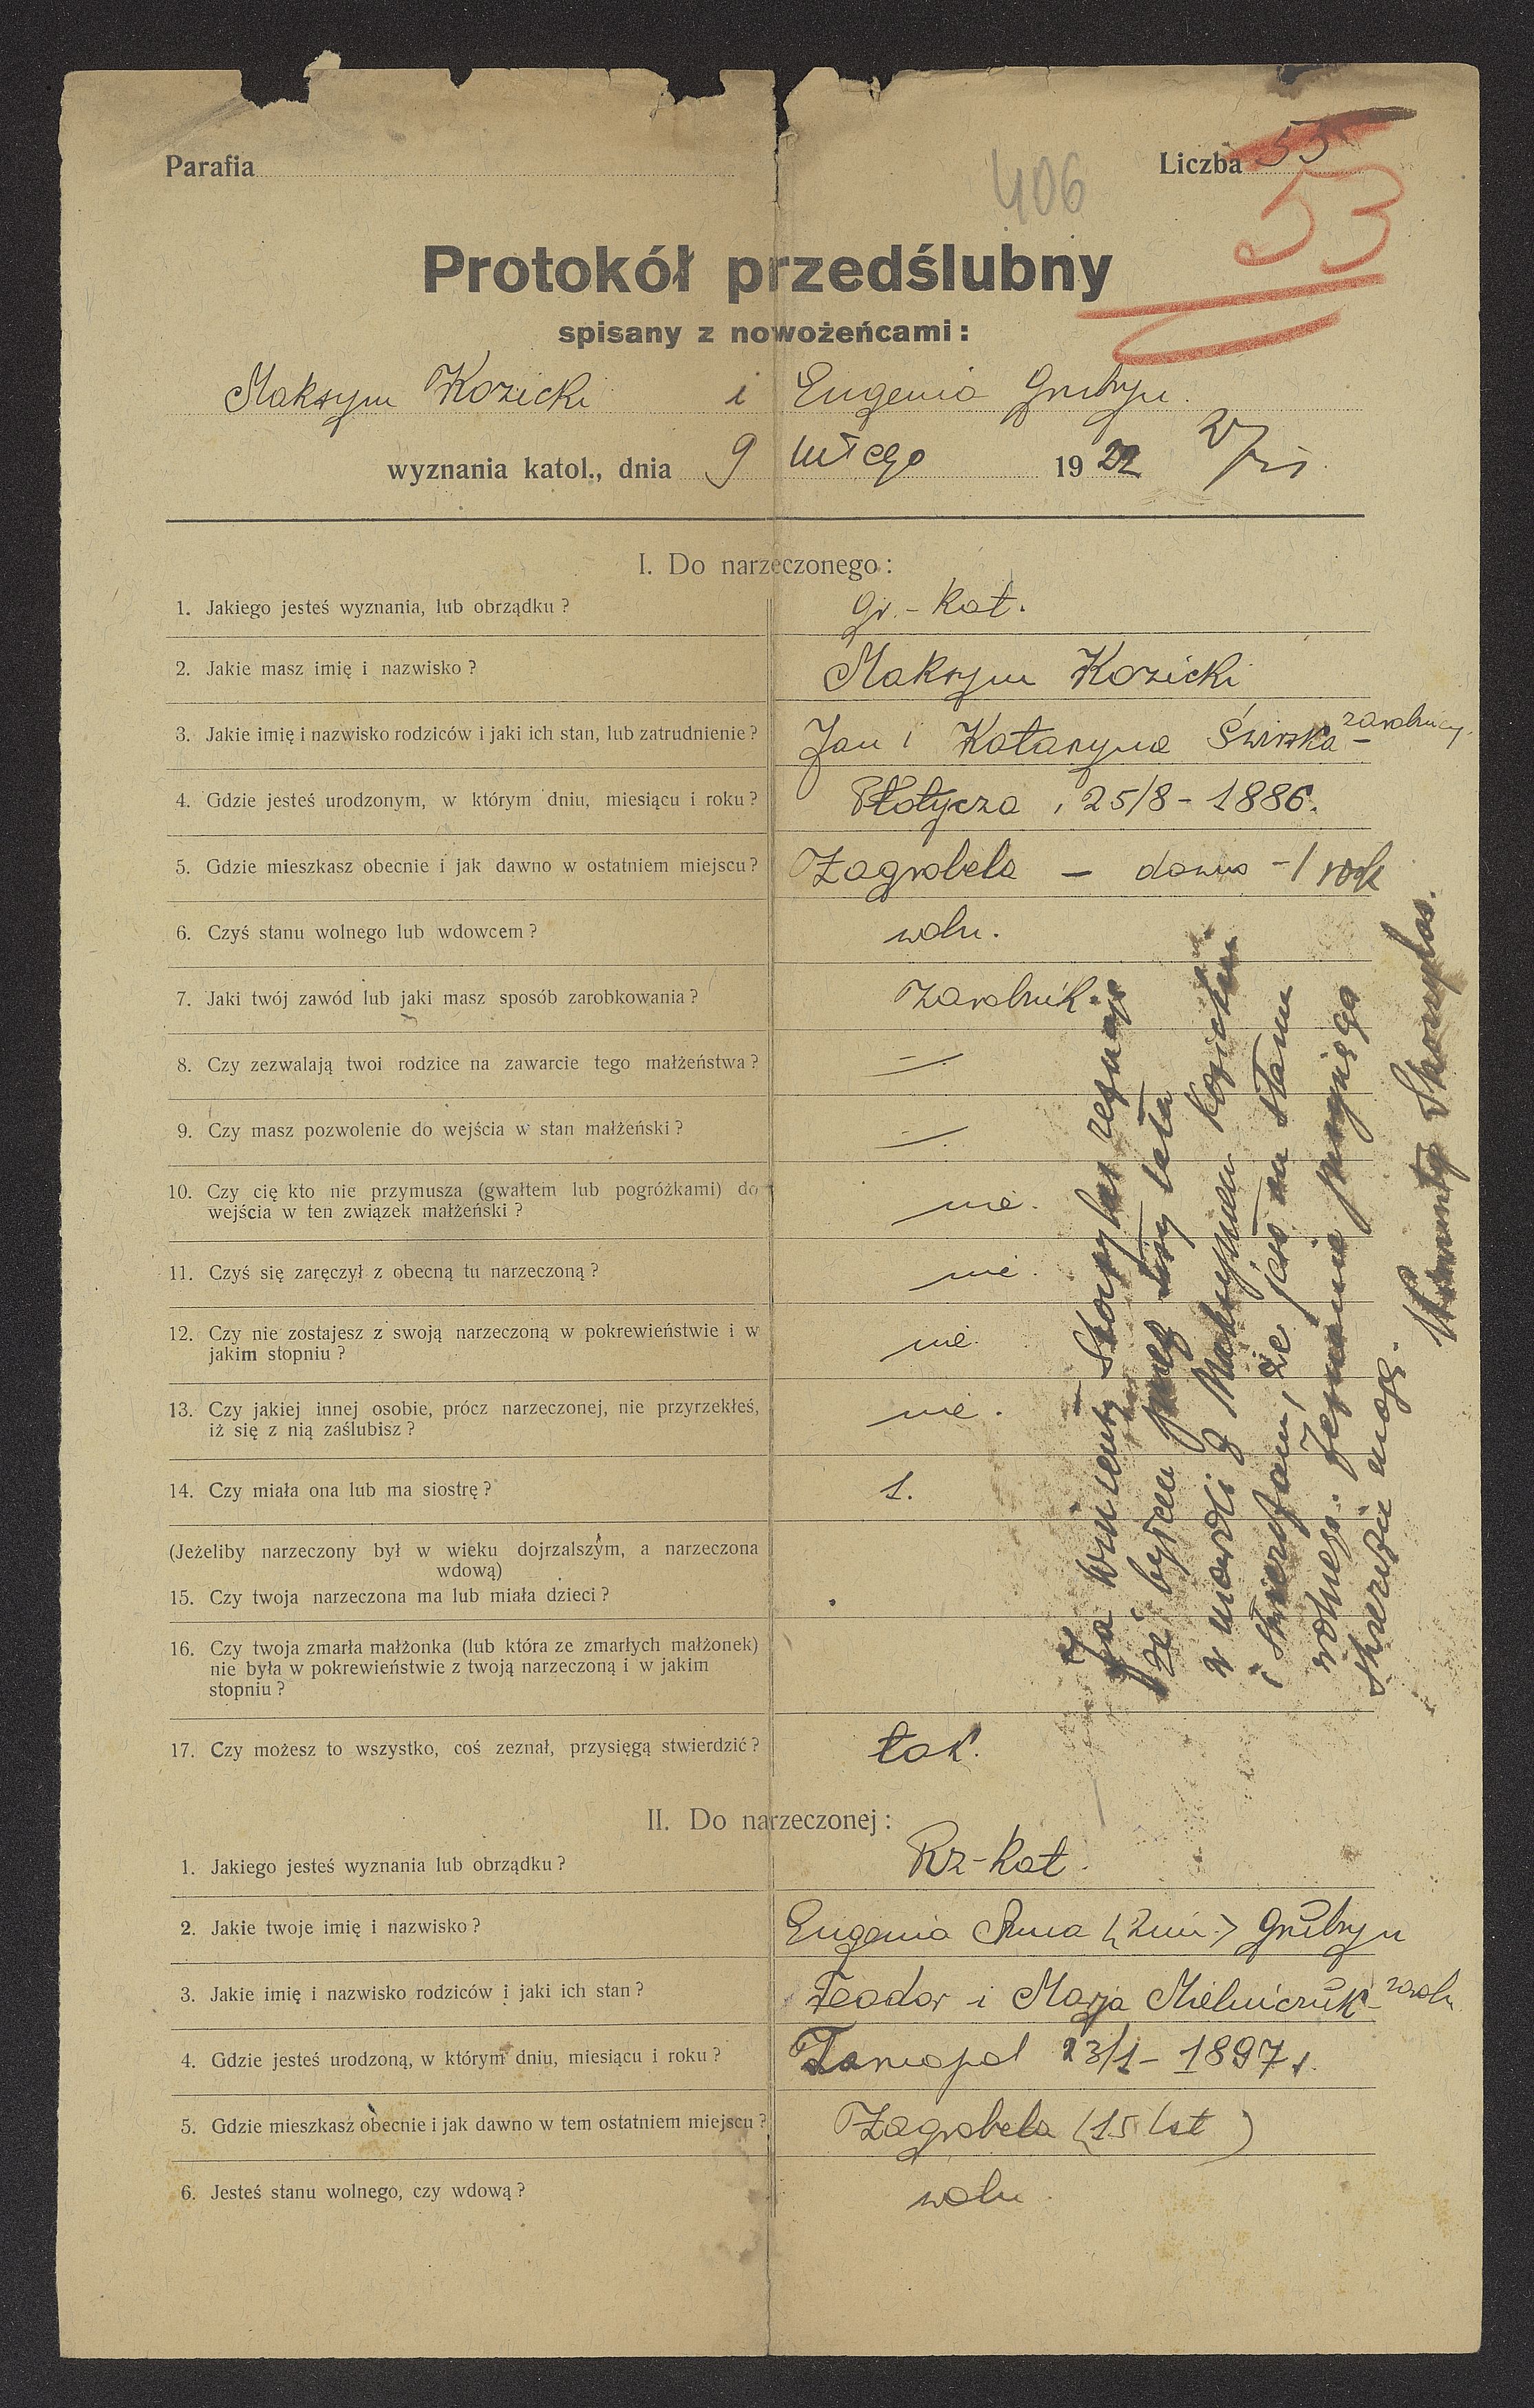 Parafia
Liczba 53
406
53
Protokół przedślubny
spisany z nowożeńcami:
Maksym Kozicki i Eugenia Grubryn.
wyznania katol., dnia 9 lutego 1922
I. Do narzeczonego:
1. Jakiego jesteś wyznania, lub obrządku? gr.-kat.
2. Jakie masz imię i nazwisko? Maksym Kozicki
3. Jakie imię i nazwisko rodziców i jaki ich stan, lub zatrudnienie? Jan i Katarzyna Świrska - zarobnicy.
4. Gdzie jesteś urodzonym, w którym dniu, miesiącu i roku? Płotycza, 25/8 - 1886.
5. Gdzie mieszkasz obecnie i jak dawno w ostatniem miejscu? Zagrobela — dawno - 1 rok
6. Czyś stanu wolnego lub wdowcem? woln.
7. Jaki twój zawód lub jaki masz sposób zarobkowania? Zarobnik.
8. Czy zezwalają twoi rodzice na zawarcie tego małżeństwa? —
9. Czy masz pozwolenie do wejścia w stan małżeński? —
10. Czy cię kto nie przymusza (gwałtem lub pogróżkami) do
wejścia w ten związek małżeński? nie.
11. Czyś się zaręczył z obecną tu narzeczoną? nie.
12. Czy nie zostajesz z swoją narzeczoną w pokrewieństwie i w
jakim stopniu? nie.
13. Czy jakiej innej osobie, prócz narzeczonej, nie przyrzekłeś,
iż się z nią zaślubisz? nie.
14. Czy miała ona lub ma siostrę? 1.
(Jeżeliby narzeczony był w wieku dojrzalszym, a narzeczona
wdową)
15. Czy twoja narzeczona ma lub miała dzieci?
16. Czy twoja zmarła małżonka (lub która ze zmarłych małżonek)
nie była w pokrewieństwie z twoją narzeczoną i w jakim
stopniu?
17. Czy możesz to wszystko, coś zeznał, przysięgą stwierdzić? tak.
Ja Wincenty Skoczylas zeznaję
że byłem przez trzy lata
w niewoli z Maksymem Kozickim
i stwierdzam, że jest on stanu
wolnego. Zeznanie przysięgą
stwierdzić mogę.
Wincenty Skoczylas.
II. Do narzeczonej:
1. Jakiego jesteś wyznania lub obrządku? Rz-kat.
2. Jakie twoje imię i nazwisko? Eugenia Anna (2 im.) Grubryn
3. Jakie imię i nazwisko rodziców i jaki ich stan? Teodor i Marja Mielniczuk - zarobn.
4. Gdzie jesteś urodzoną, w którym dniu, miesiącu i roku? Tarnopol 23/1 - 1897 r.
5. Gdzie mieszkasz obecnie i jak dawno w tem ostatniem miejscu? Zagrobela (15 lat)
6. Jesteś stanu wolnego, czy wdową? woln.